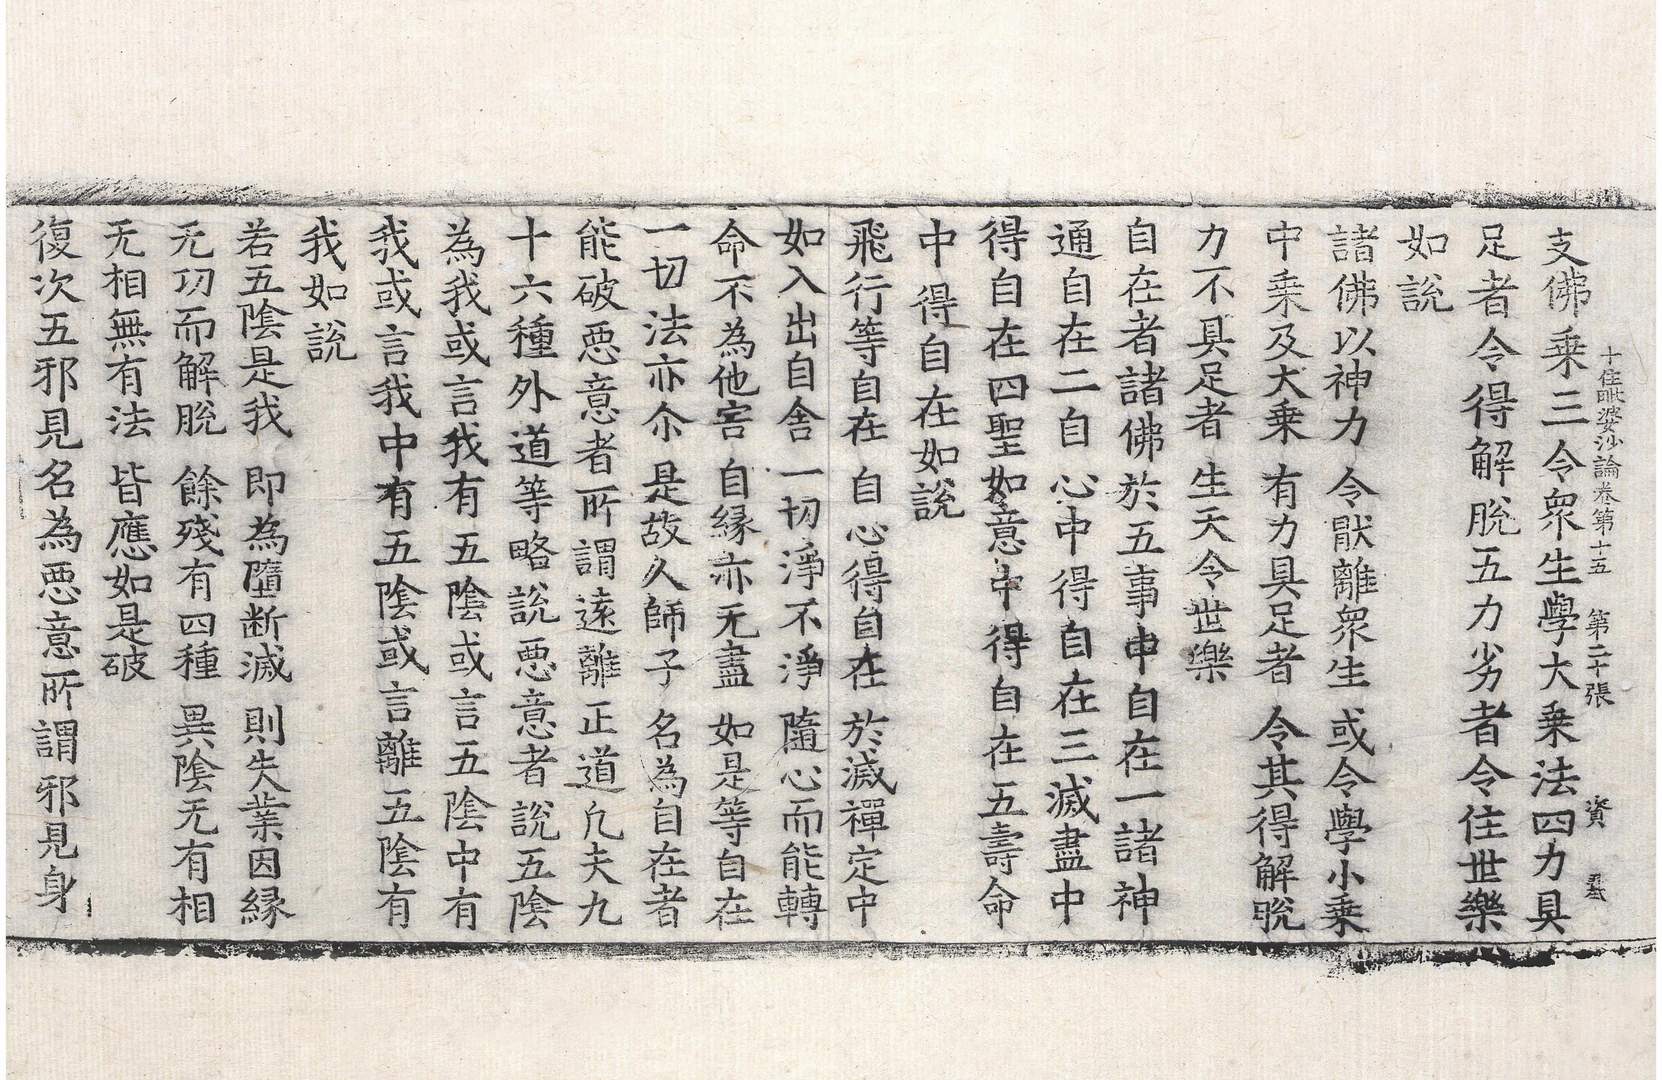 十住毗婆沙論卷第十五　第二十張　資
支佛乘三令衆生學大乘法四力具
足者令得解脫五力劣者令住世樂
如說
諸佛以神力　令猒離衆生　或令學小乘
中乘及大乘　有力具足者　令其得解脫
力不具足者　生天令世樂
自在者諸佛於五事中自在一諸神
通自在二自心中得自在三滅盡中
得自在四聖如意中得自在五壽命
中得自在如說
飛行等自在　自心得自在　於滅禪定中
如入出自舍　一切淨不淨　隨心而能轉
命不為他害　自緣亦无盡　如是等自在
一切法亦尒　是故久師子　名為自在者
能破惡意者所謂遠離正道凡夫九
十六種外道等略說惡意者說五陰
為我或言我有五陰或言五陰中有
我或言我中有五陰或言離五陰有
我如說
若五陰是我　即為墮断滅　則失業因緣
无功而解脫　餘殘有四種　異陰无有相
无相無有法　皆應如是破
復次五邪見名為惡意所謂邪見身